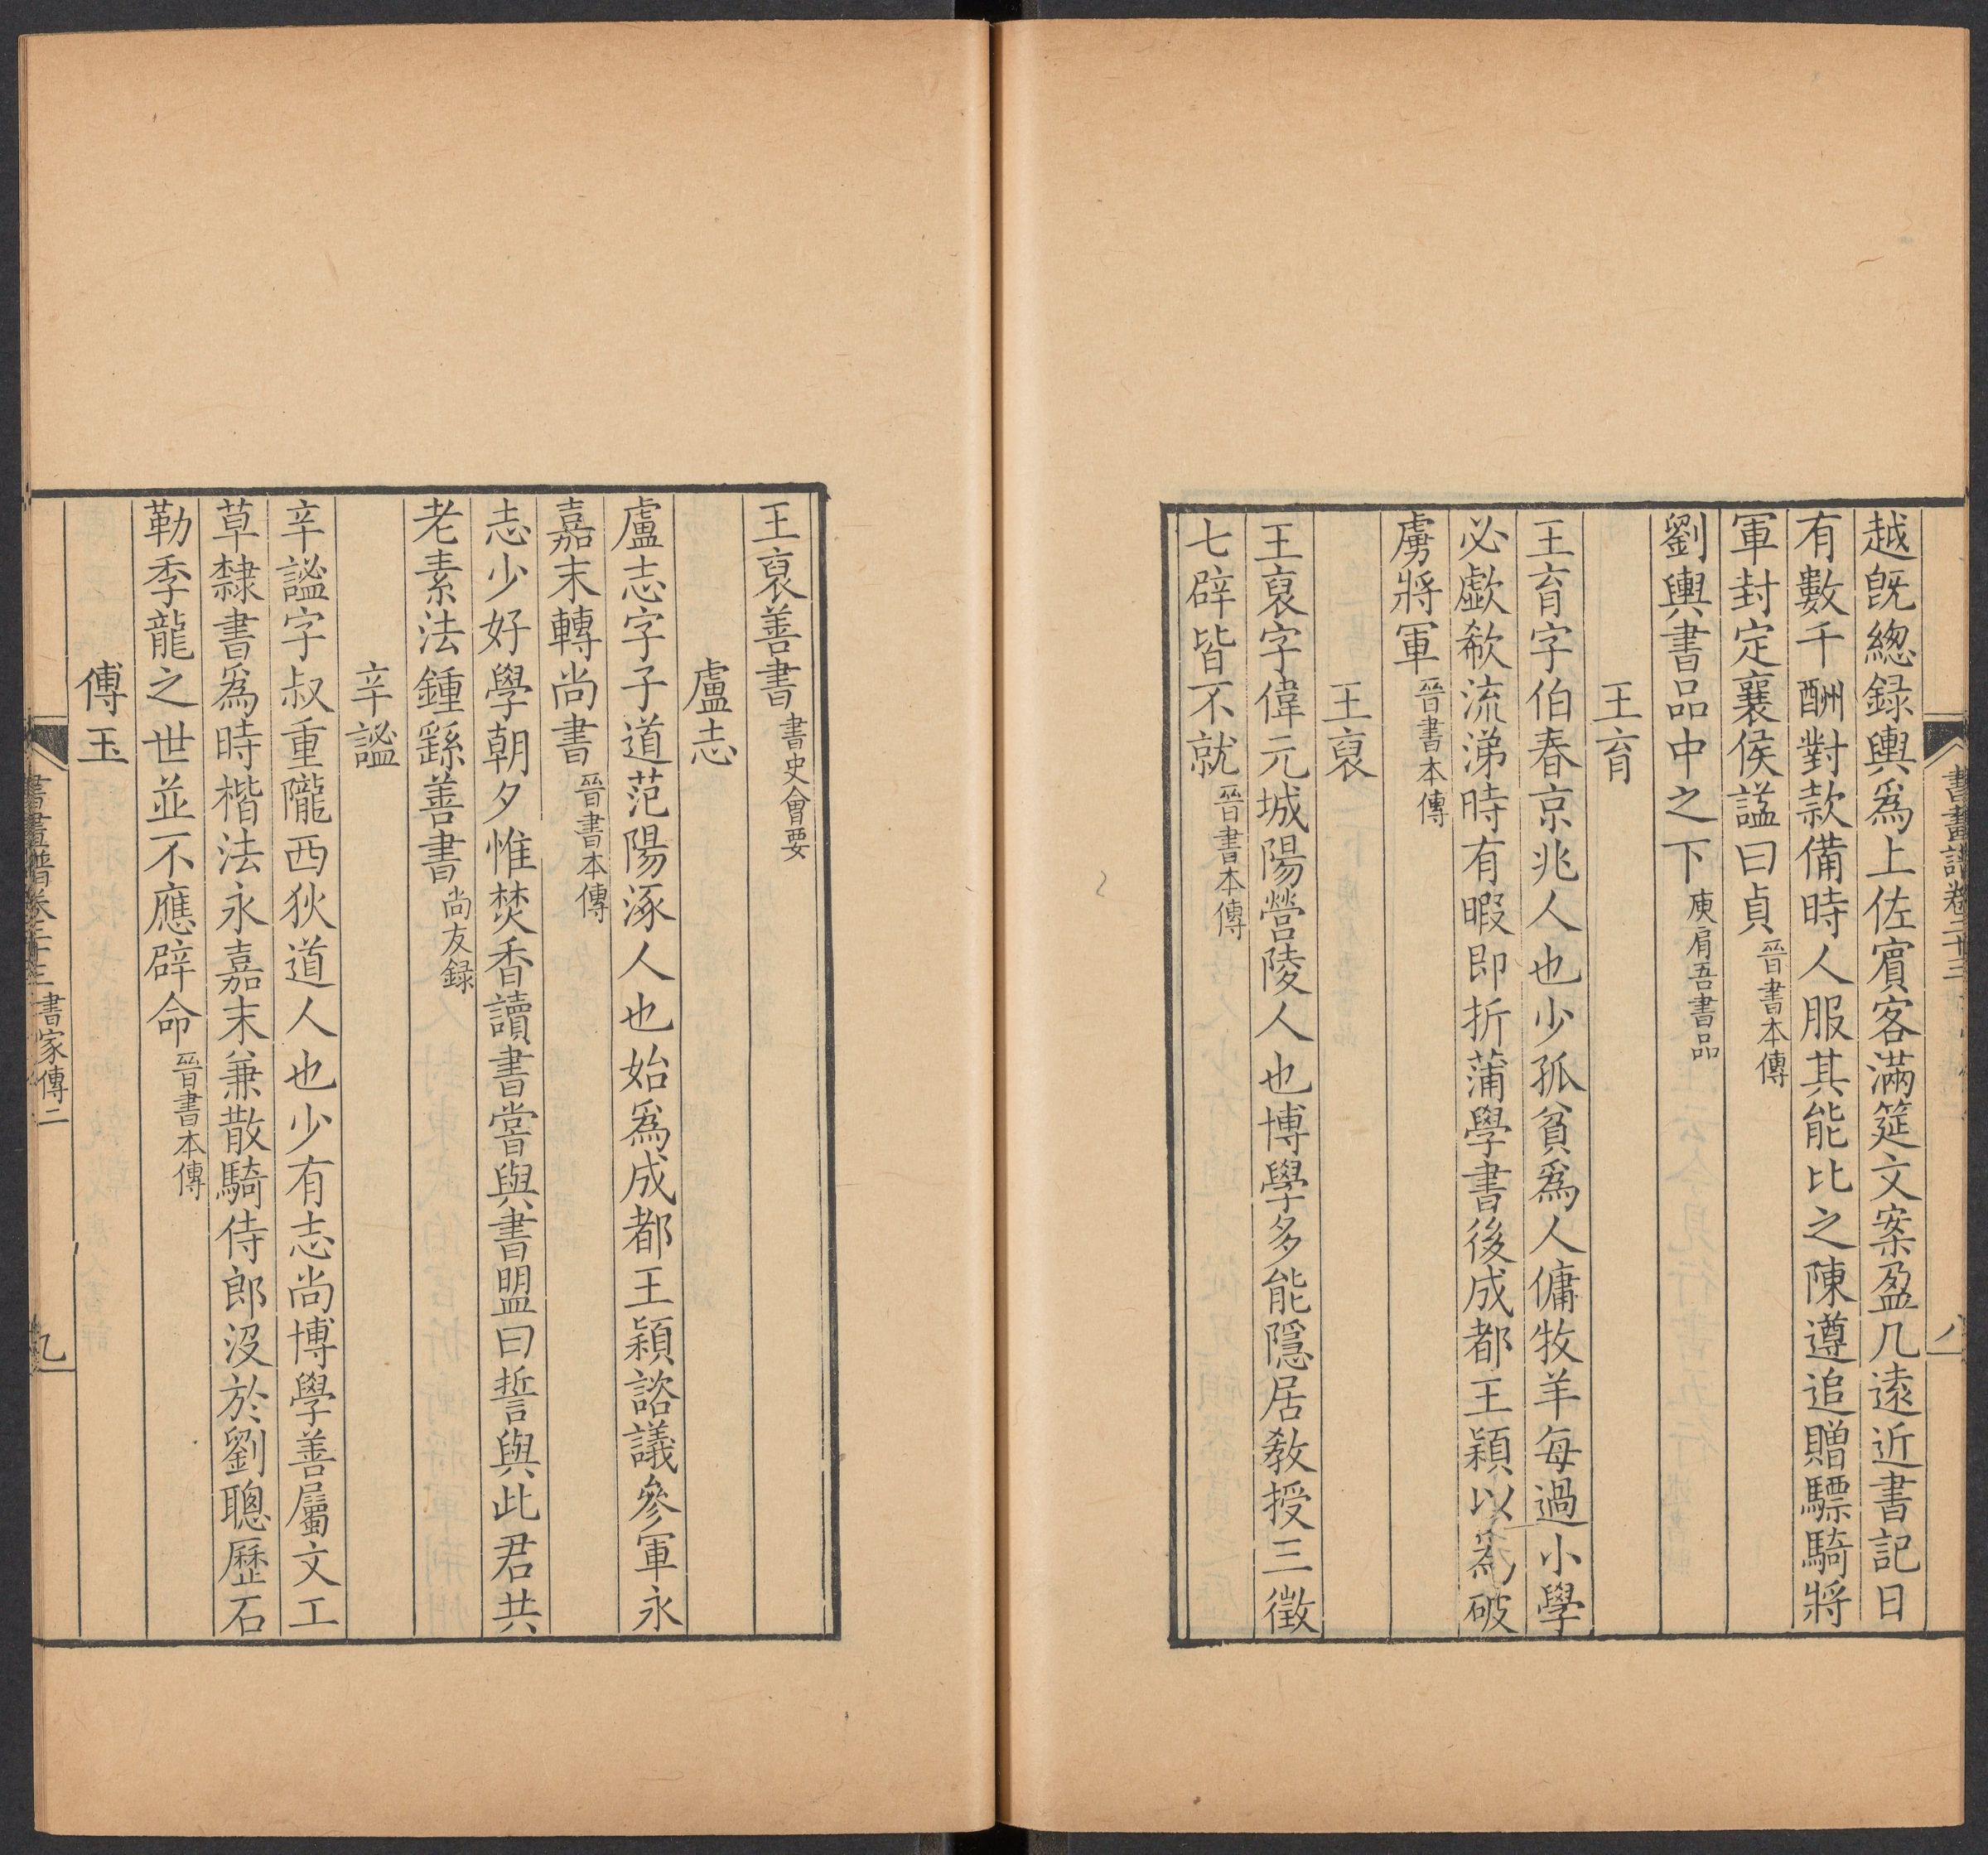 越旣緫録輿爲上佐賓客滿筵文案盈几逺近書記日
有數千酬對款備時人服其能比之陳遵追贈驃騎將
軍封定襄侯諡曰貞晉書本傳
劉輿書品中之下庾肩吾書品
王育
王育字伯春京兆人也少孤貧爲人傭牧羊每過小學
必歔欷流涕時有暇即折蒲學書後成都王穎以爲破
虜將軍晉書本傳
王裒
王裒字偉元城陽營陵人也博學多能隱居敎授三徵
七辟皆不就晉書本傳
王裒善書書史會要
盧志
盧志字子道范陽涿人也始爲成都王穎諮議參軍永
嘉末轉尚書晉書本傳
志少好學朝夕惟焚香讀書嘗與書盟曰誓與此君共
老素法鍾繇善書尚友録
辛謐
辛謐字叔重隴西狄道人也少有志尚博學善屬文工
草隸書爲時楷法永嘉末兼散騎侍郎没於劉聰歷石
勒季龍之世並不應辟命晉書本傳
傅玉
書畫譜卷二十三 書家傳二 九